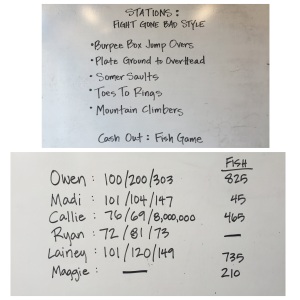 STATIONS:
FIGHT GONE BAD STYLE
• Burpee Box Jump Overs
• Plate Ground to OverHead
• Somer Saults
• Toes To Rings
• Mountain Climbers
Cash Out: Fish Game
FISH
Owen: 100/200/303 825
Madi: 101/104/147 45
Callie: 76/69/8,000,000 465
Ryan: 72/81/73 —
Lainey: 101/120/149 735
Maggie: — 210